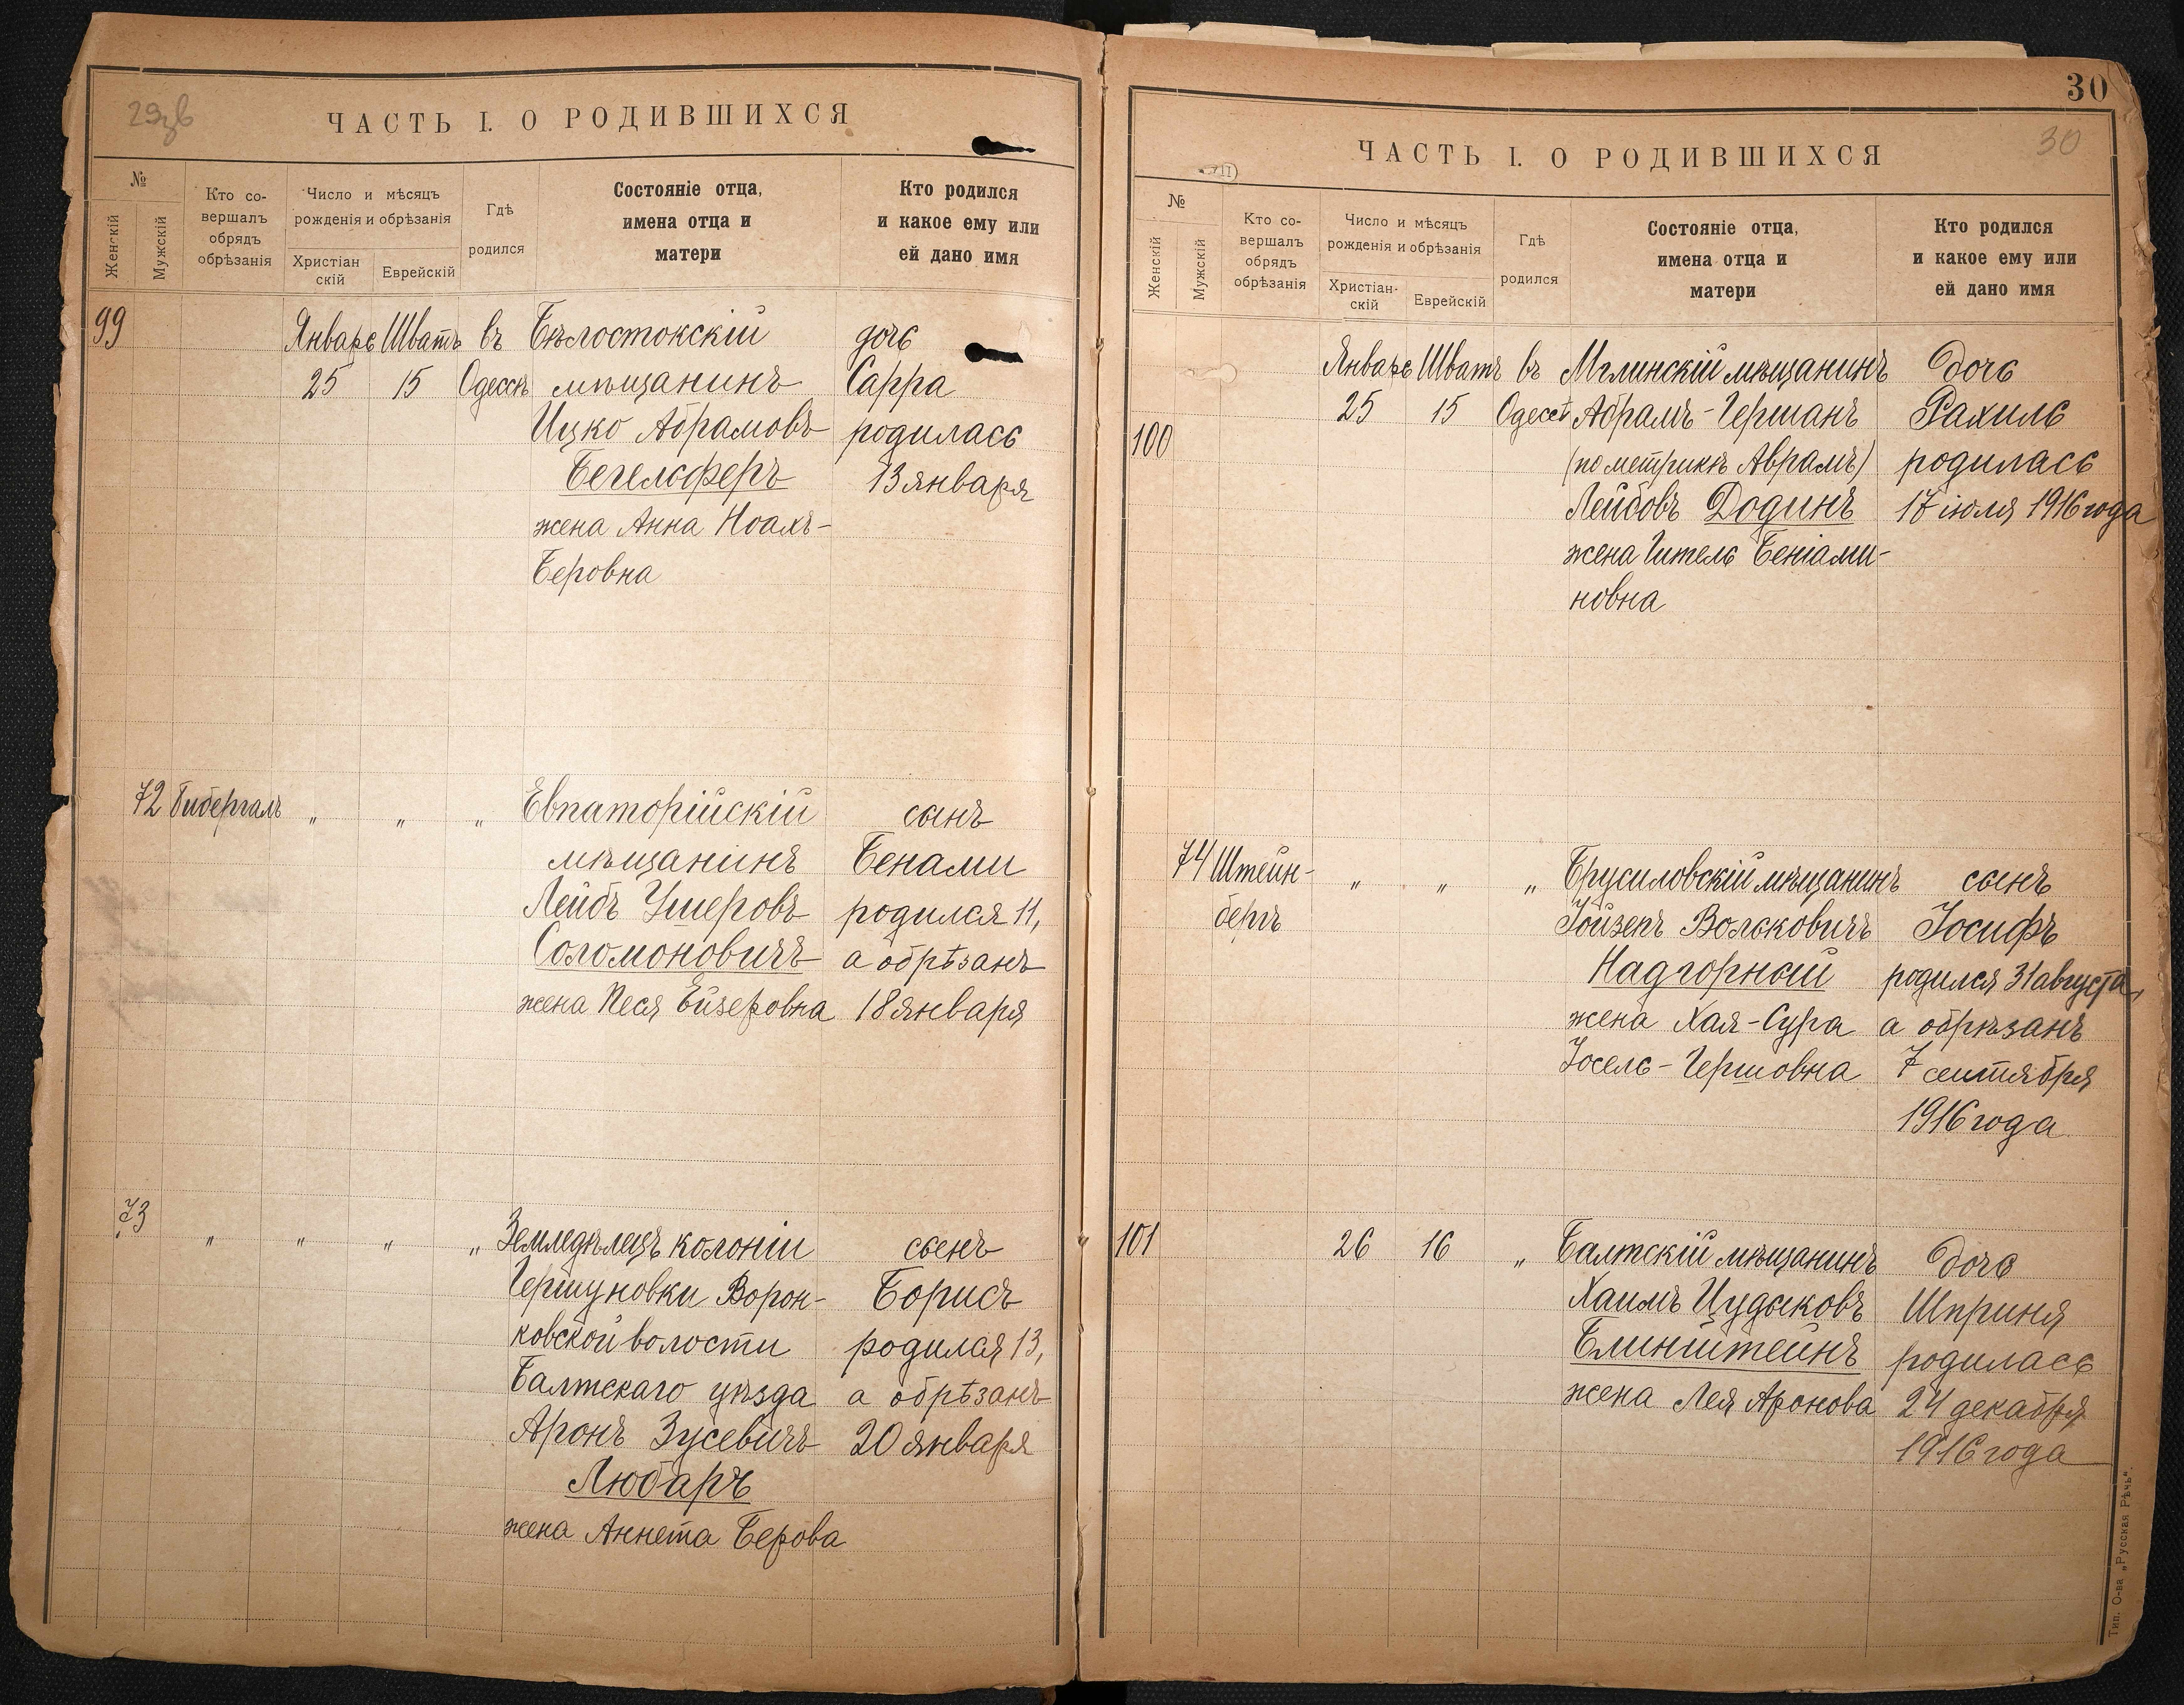 29зв
ЧАСТЬ I. О РОДИВШИХСЯ
№
Женскій
Мужскій
Кто со-
вершалъ
обрядъ
обрѣзанія
Число и мѣсяцъ
рожденія и обрѣзанія
Христіан
скій
Еврейскій
Гдѣ
родился
Состояніе отца,
имена отца и
матери
Кто родился
и какое ему или
ей дано имя
99 Январь Шватъ въ Бѣлостокскій дочь
25 15 Одессѣ мѣщанинъ Сарра
Ицко Абрамовъ родилась
Бегельферъ 13 января
жена Анна Ноахъ-
Беровна
72 Бибергалъ „ „ „ Евпаторійскій сынъ
мѣщанинъ Бенами
Лейбъ Ушеровъ родился 11,
Соломоновичъ а обрѣзанъ
жена Песя Ейзеровна 18 января
73 „ „ „ „ Земледѣлецъ колоніи сынъ
Гершуновки Ворон- Борисъ
ковской волости родился 13,
Балтскаго уѣзда а обрѣзанъ
Аронъ Зусевичъ 20 января
Любаръ
жена Аннета Берова
30
30
ЧАСТЬ I. О РОДИВШИХСЯ
№
Женскій
Мужскій
Кто со-
вершалъ
обрядъ
обрѣзанія
Число и мѣсяцъ
рожденія и обрѣзанія
Христіан-
скій
Еврейскій
Гдѣ
родился
Состояніе отца,
имена отца и
матери
Кто родился
и какое ему или
ей дано имя
Январь Шватъ въ Мглинскій мѣщанинъ Дочь
25 15 Одессѣ Абрамъ-Германъ Рахиль
100 (по метрикѣ Аврамъ) родилась
Лейбовъ Додинъ 17 іюля 1916 года
жена Гитель Беніами-
новна
74 Штейн- „ „ „ Брусиловскій мѣщанинъ сынъ
бергъ Іойзепъ Вольковичъ Іосифъ
Надгорный родился 31 августа,
жена Хая-Сура а обрѣзанъ
Іосель-Гершовна 7 сентября
1916 года
101 26 16 „ Балтскій мѣщанинъ Дочь
Хаимъ Цудыковъ Шприня
Блинштейнъ родилась
жена Лея Аронова 24 декабря
1916 года
Тип. О-ва „Русская Рѣчь“.